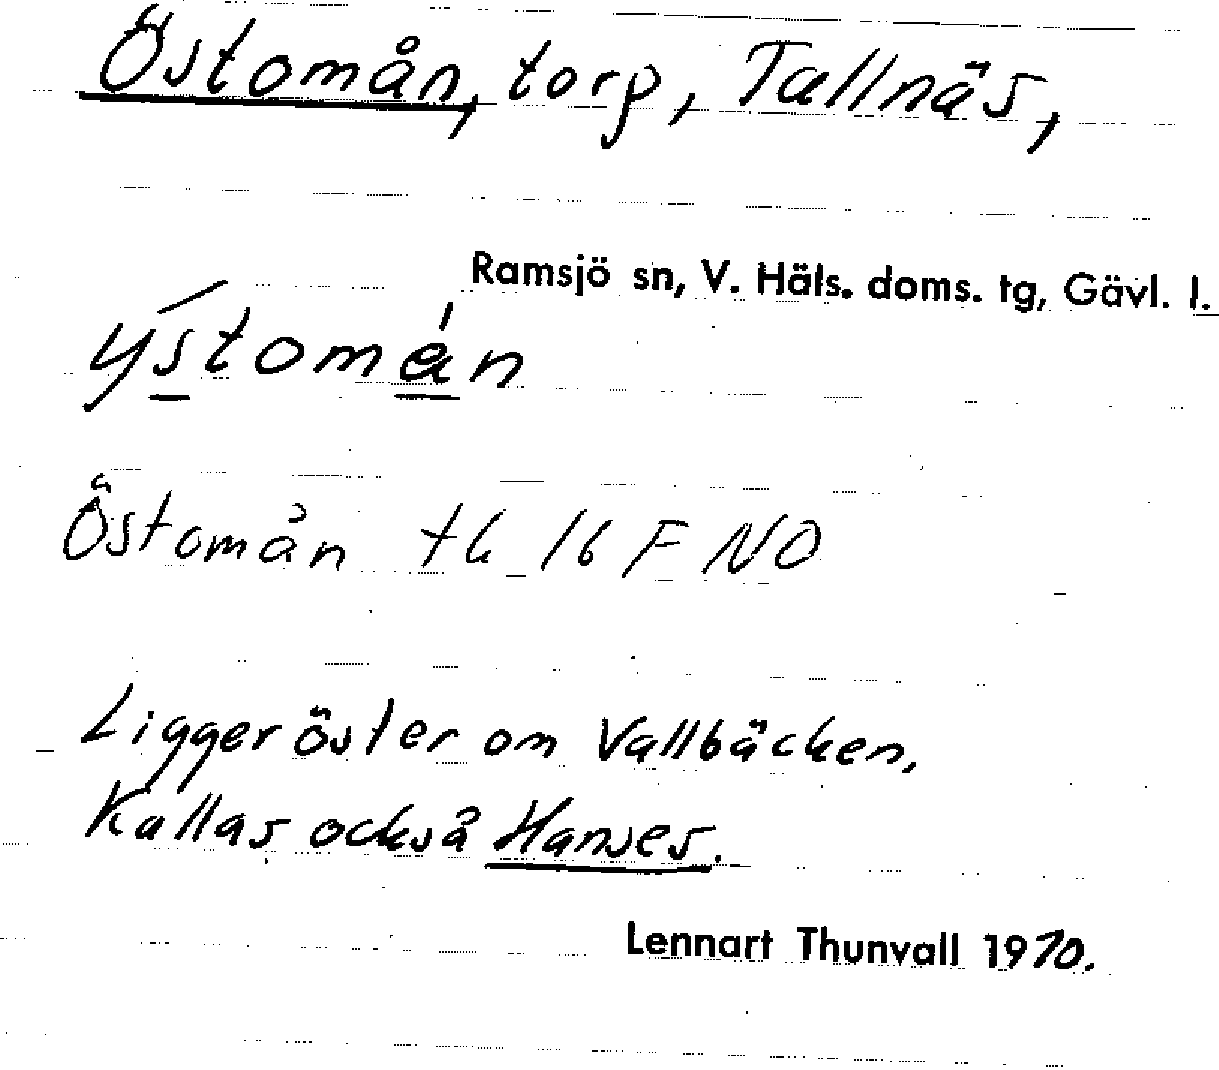 Östomån, torp, Tallnäs,
Ramsjö sn, V. Häls. doms. tg, Gävl. l.
ýstomán
Östomån tk 16 F NO
Ligger öster om Vallbäcken,
Kallas också Hanses.
Lennart Thunvall 1970.